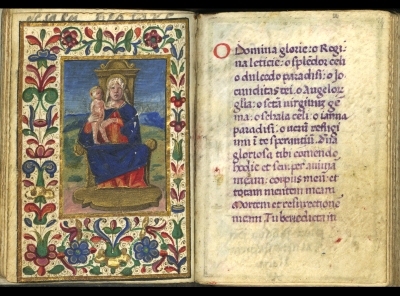 O Domina glorie: o Regi
na leticie: o splēdor celi
o dulcedo paradisi: o Jo
cunditas tri: o Angelor
glīa: o scīa virginū ge
ma: o schala celi: o ianna
paradisi: o
in te sperantiū.
gloriosa tibi comendo
hodie et semper
meam: corpus meū: et
totam mentem meam
Mortem et resurectione
meam Tu benedicta in